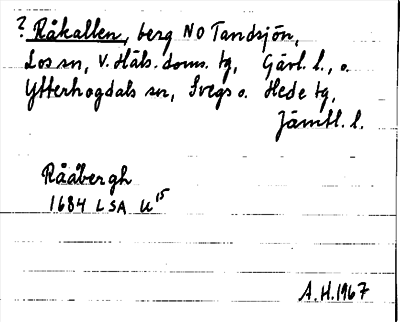 ? Råkallen, berg NO Tandsjön,
Los sn, V. Häls. doms. tg, Gävl. l., o.
Ytterhogdals sn, Svegs o. Hede tg,
Jämtl. l.
Rååbergh
1684 LSA U15
A.H. 1967